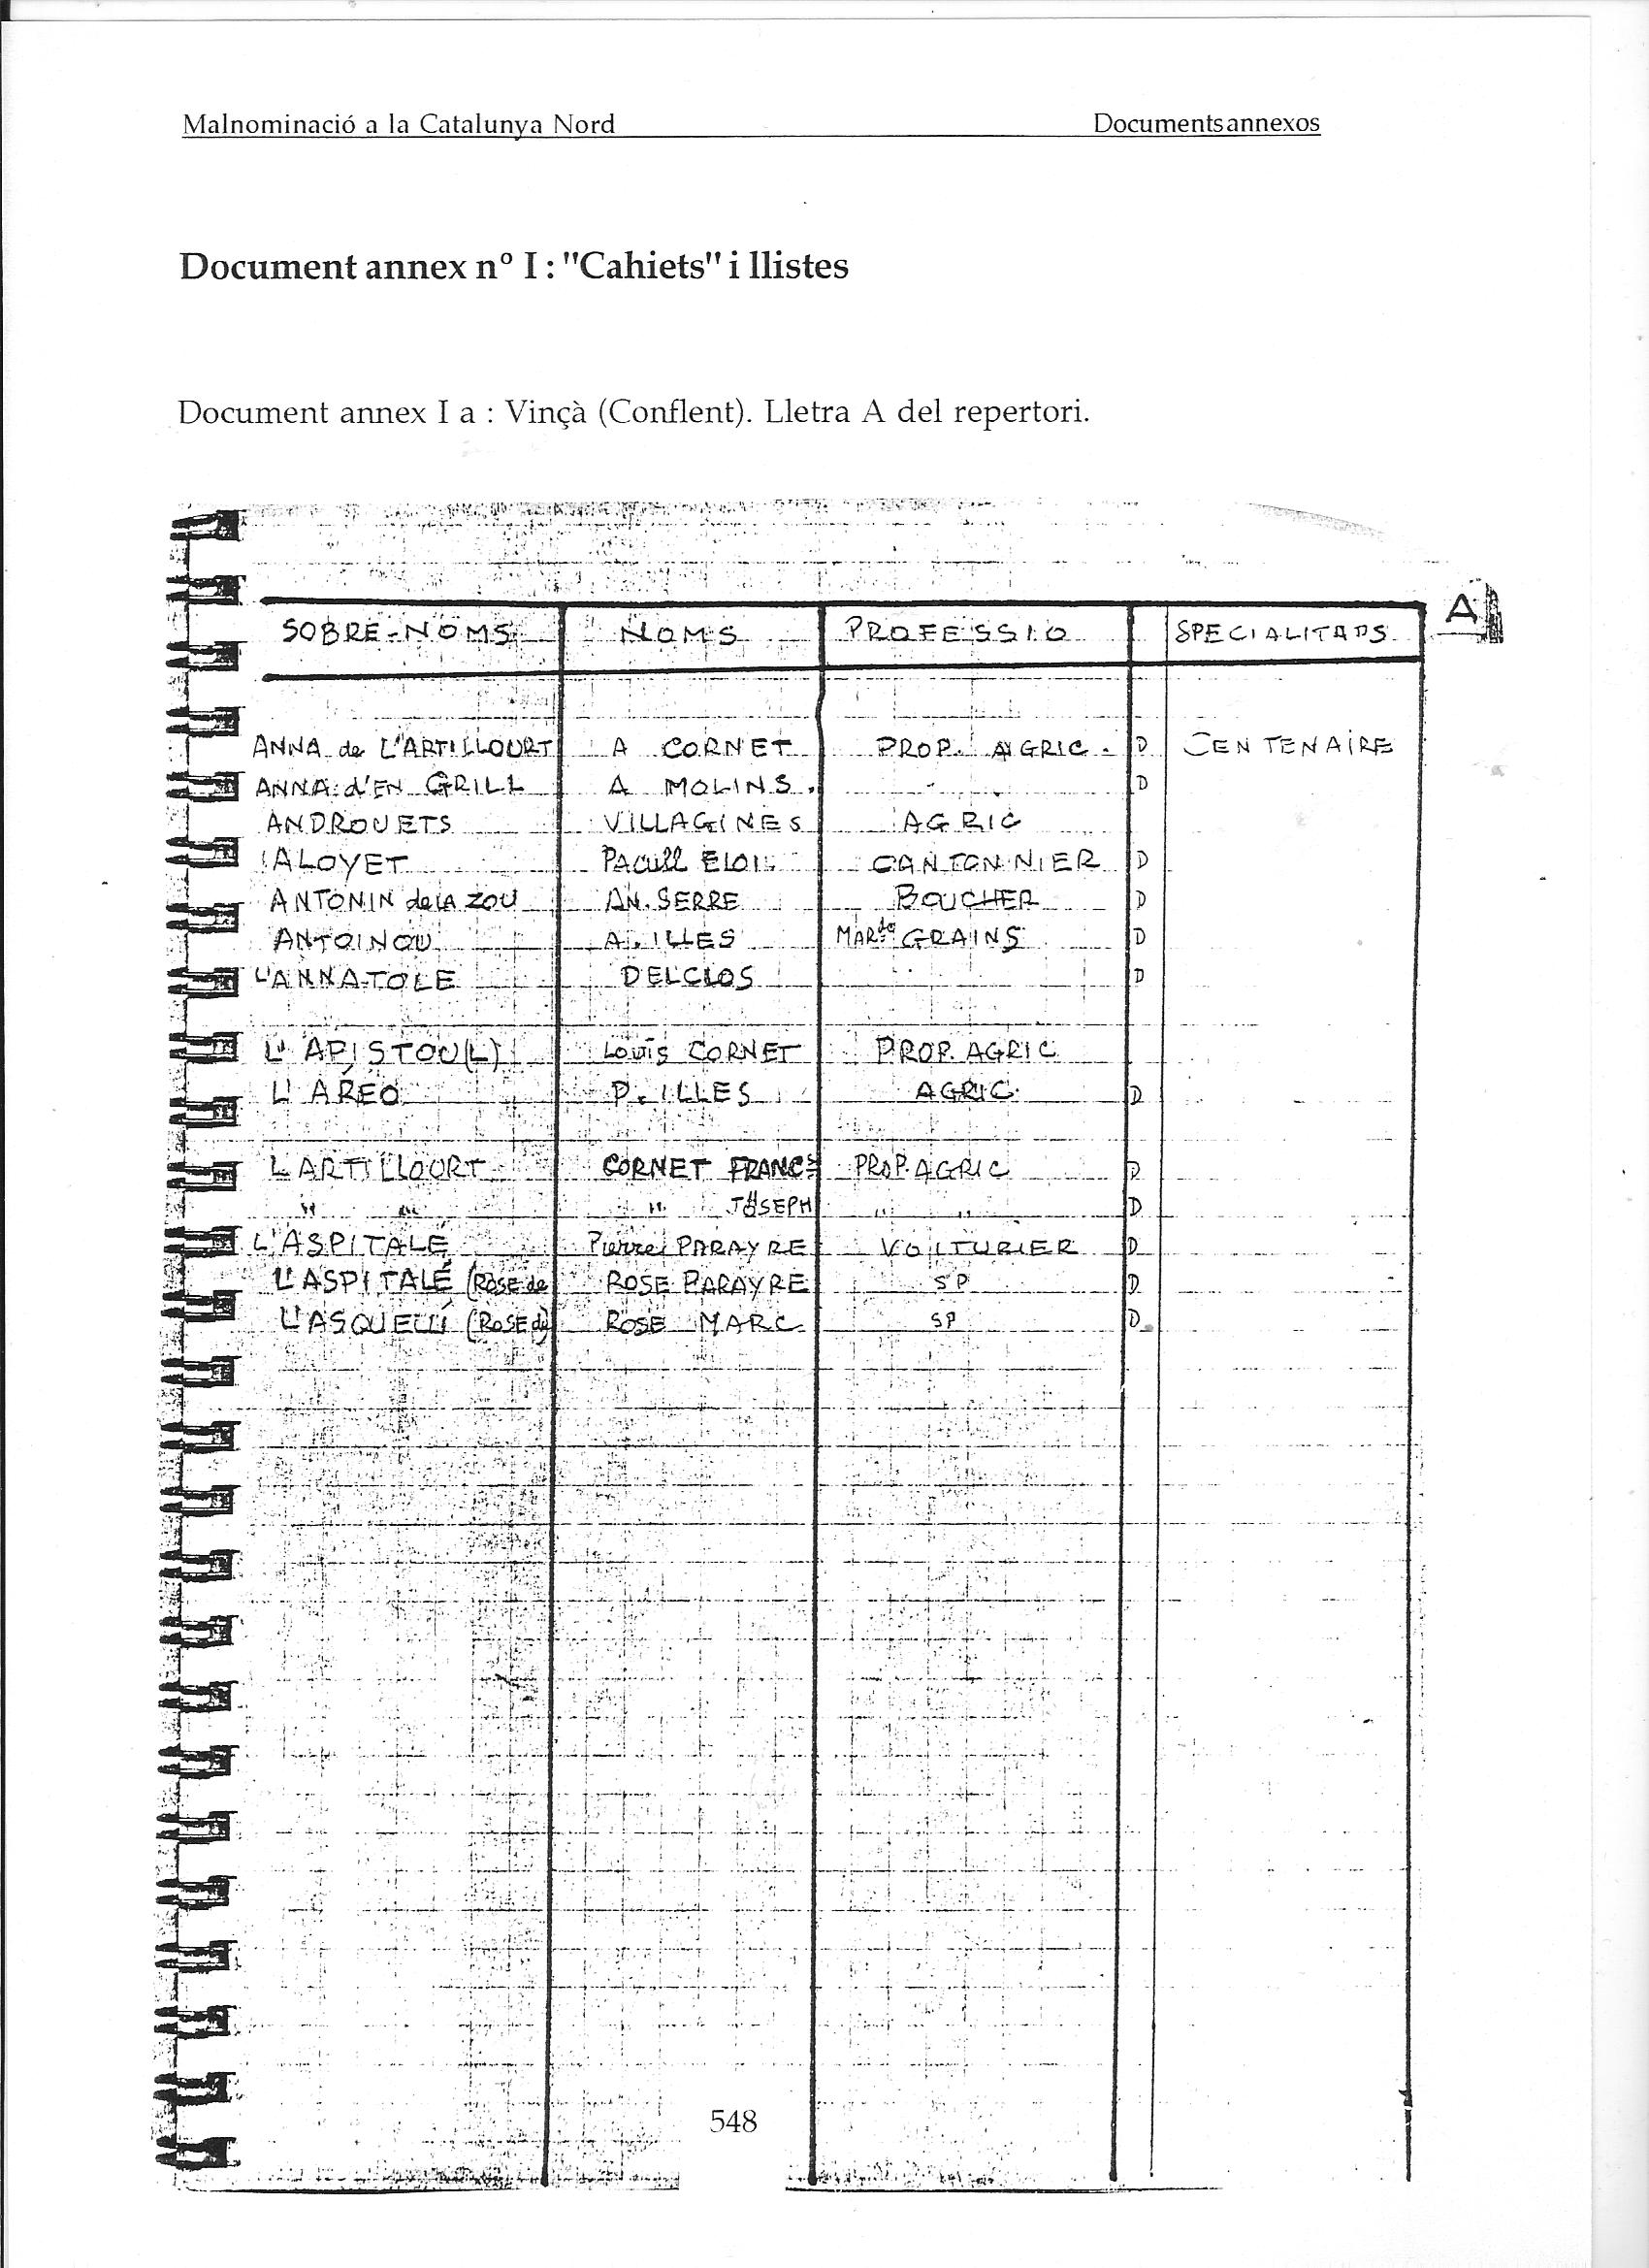 Malnominació a la Catalunya Nord Documents annexos
Document annex nº I : "Cahiets" i llistes
Document annex I a : Vinçà (Conflent). Lletra A del repertori.
A
SOBRE-NOMS NOMS PROFESSIO SPECIALITATS
ANNA de L'ARTILLOURT A CORNET PROP. AGRIC. D CENTENAIRE
ANNA d'EN GRILL A MOLINS. D
ANDROUETS VILLAGINES AGRIC
ALOYET PACULL ELOI CANTONNIER D
ANTONIN de LA ZOU AN. SERRE BOUCHER D
ANTOINOU A. ILLES MAR de GRAINS D
L'ANNATOLE DELCLOS D
L'APISTOU(L) LOUIS CORNET PROP. AGRIC
L'AREO P. ILLES AGRIC. D
L'ARTILLOURT CORNET FRANCS PROP. AGRIC D
" " " JOSEPH " " D
L'ASPITALÉ Pierre PARAYRE VOITURIER D
L'ASPITALÉ (ROSE de ROSE PARAYRE SP D
L'ASQUELLÍ (ROSE de) ROSE MARC SP D
548